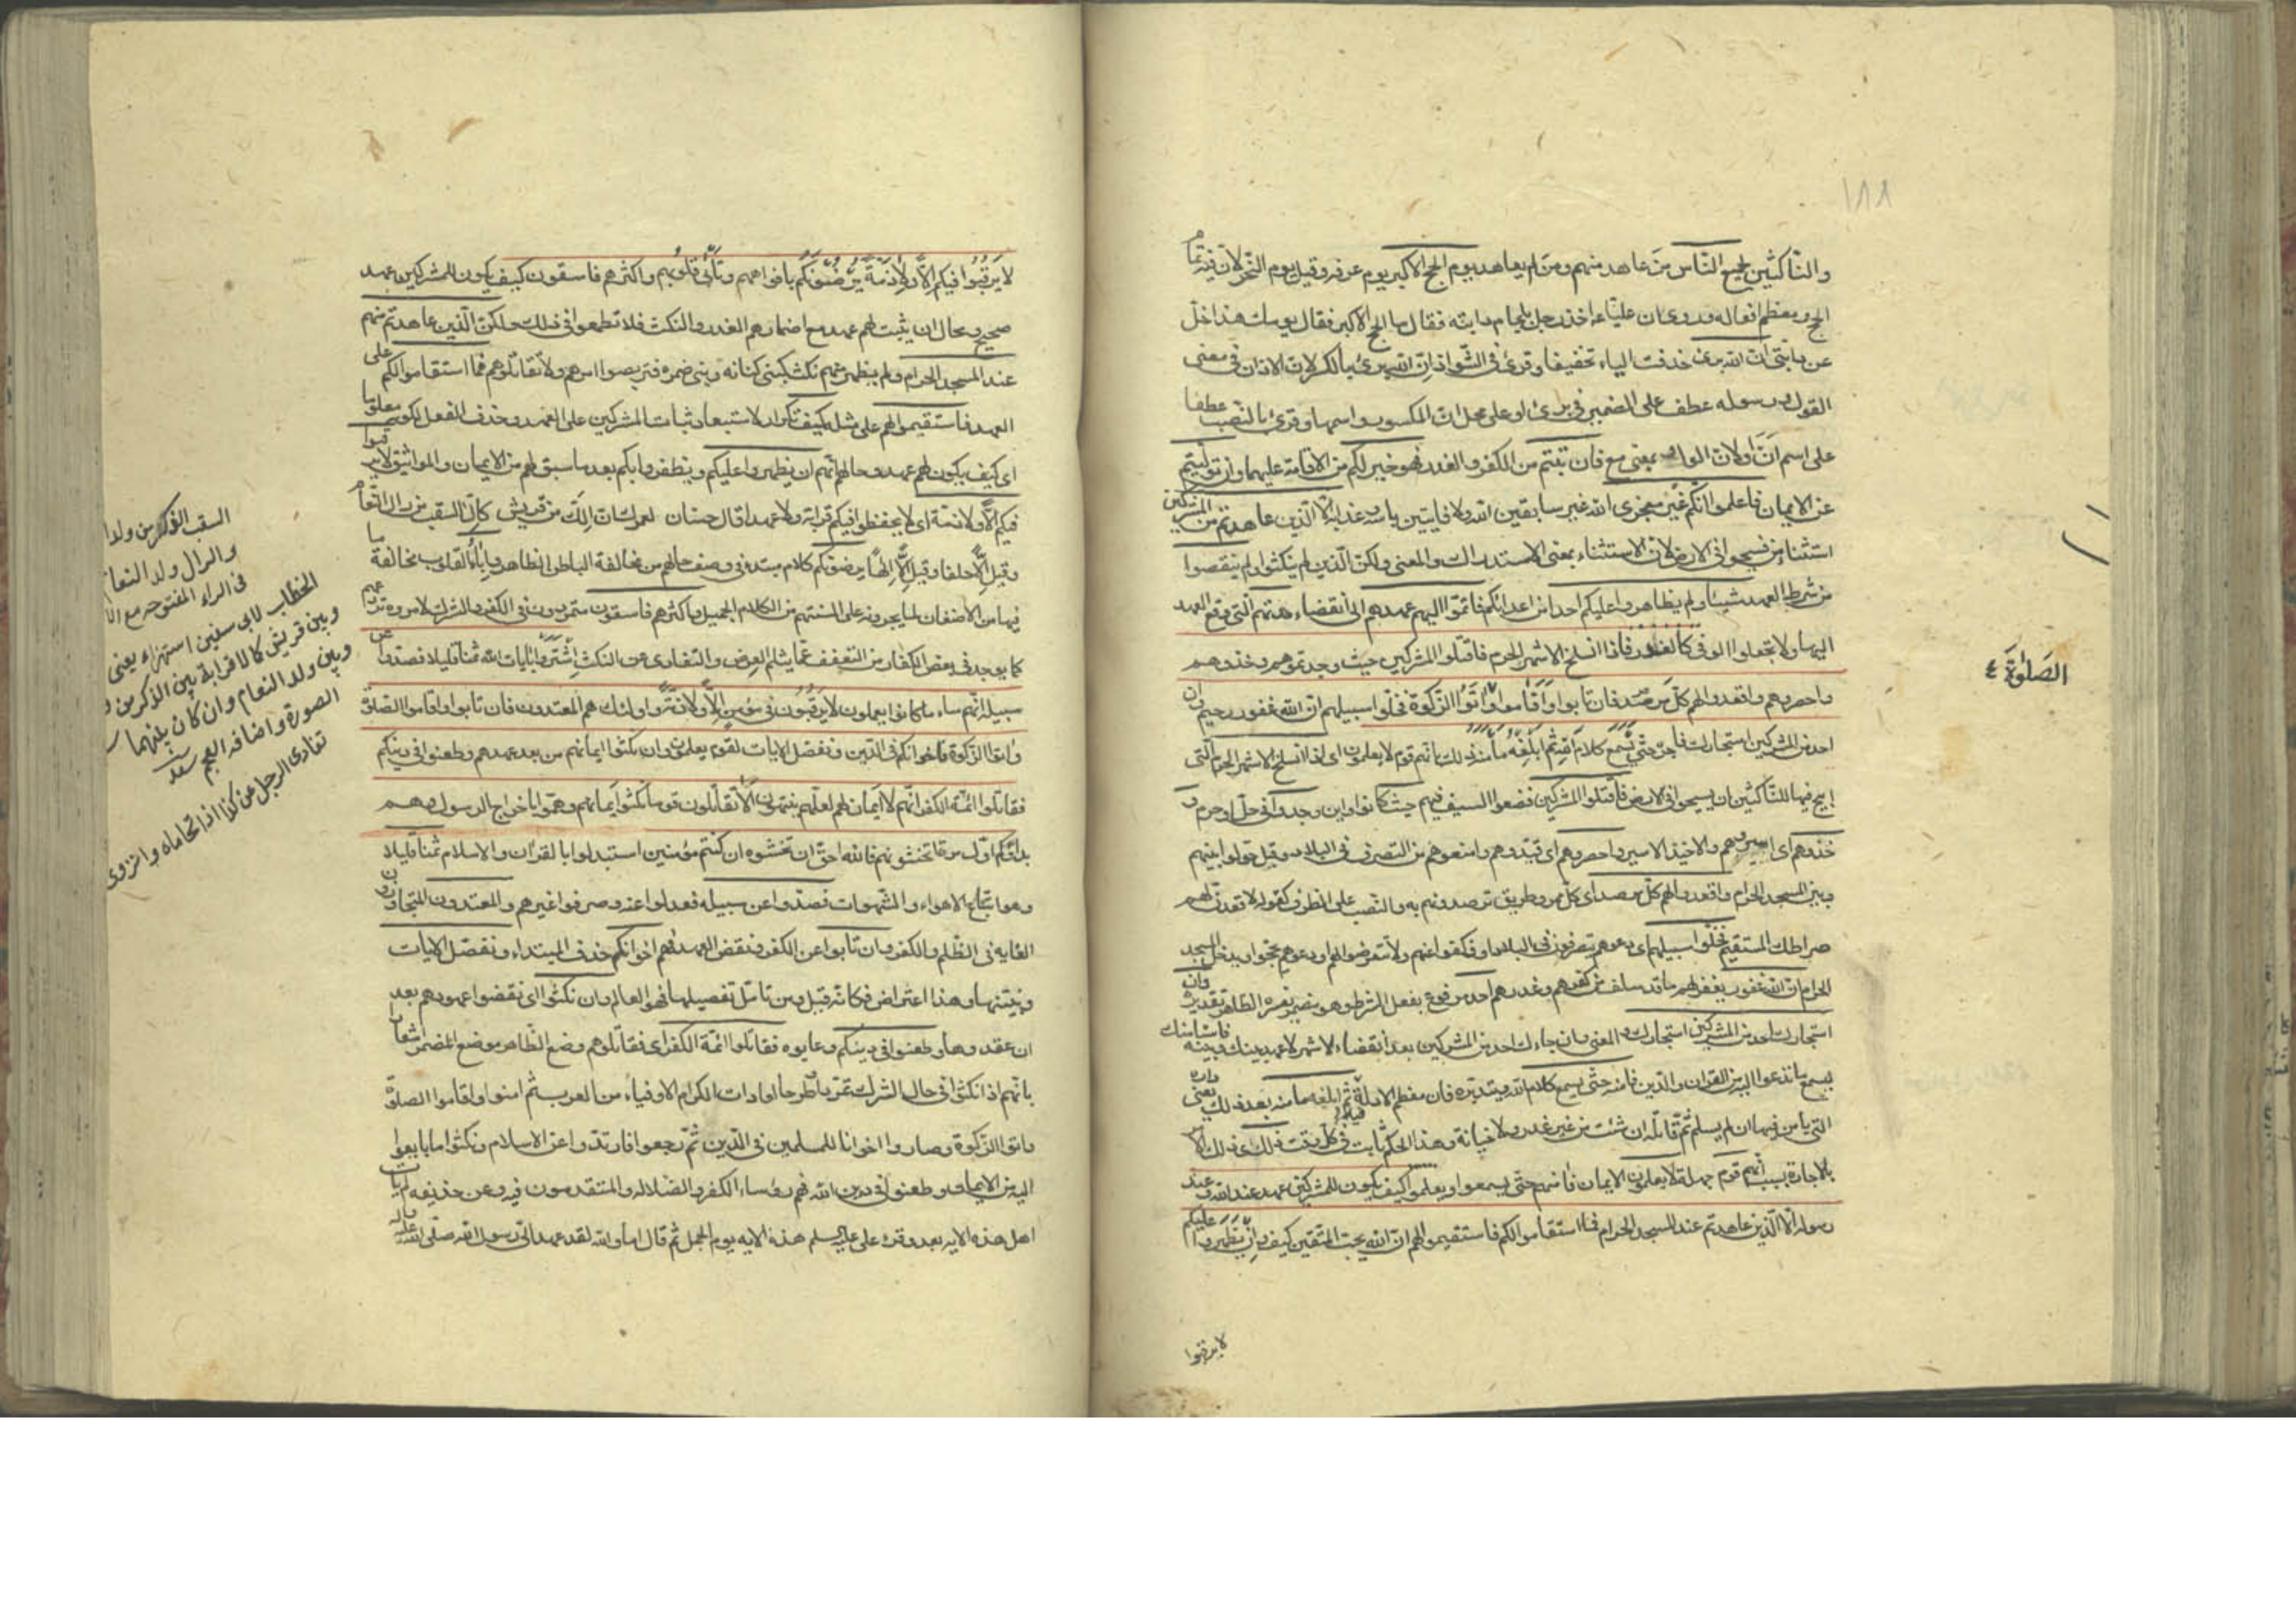 ١٨٨
والناكثين لجميع الناس من عاهد منهم ومن لم يعاهد يوم الحج الاكبر يوم عرفه وقيل يوم النحر لان فيه تمام
الحج ومعظم افعاله وروى ان عليا ع اخذ رجل بلجام دابته فقال ما الحج الاكبر فقال يومك هذا خل
عن دابتى ان الله برئ حذفت الباء تخفيفا وقرئ فى الشواذ ان الله برئ بالكسر لان الاذان فى معنى
القول ورسوله عطف على الضمير فى برئ او على محل ان المكسوره واسمها وقرئ بالنصب عطفا
على اسم ان او لان الواو بمعنى مع فان تبتم من الكفر والغدر فهو خير لكم من الاقامة عليهما وان توليتم
عن الايمان فاعلموا انكم غير معجزى الله غير سابقين الله ولا فايتين باسه وعذابه الا الذين عاهدتم من المشركين
استثناء من فسيحوا فى الارض لان الاستثناء بمعنى الاستدراك والمعنى ولكن الذين لم ينكثوا ولم ينقصوا
من شرط العهد شيئا ولم يظاهروا عليكم احدا من اعدائكم فاتموا اليهم عهدهم الى انقضاء مدتهم التى وقع العهد
اليها ولا تجعلوا الوفى كالغادر فاذا انسلخ الاشهر الحرم فاقتلوا المشركين حيث وجدتموهم وخذوهم
واحصروهم واقعدوا لهم كل مرصد فان تابوا واقاموا واتوا الزكوة فخلوا سبيلهم ان الله غفور رحيم وان
الصلوة ٤
احد من المشركين استجارك فاجره حتى يسمع كلام الله ثم ابلغه مأمنه ذلك بانهم قوم لا يعلمون اى اذا انسلخ الاشهر الحرم التى
ابيح فيها للناكثين ان يسيحوا فى الارض فاقتلوا المشركين فضعوا السيف فيهم حيث كانوا واين وجدوا فى حل او حرم و
خذوهم اى اسروهم والاخيذ الاسير واحصروهم اى قيدوهم وامنعوهم من التصرف فى البلاد وقيل حولوا بينهم
وبين المسجد الحرام واقعدوا لهم كل مرصد اى كل ممر وطريق ترصدونهم به والنصب على الظرف كقوله لاقعدن لهم
صراطك المستقيم فخلوا سبيلهم اى دعوهم يتصرفون فى البلاد او فكفوا عنهم ولا تتعرضوا لهم او دعوهم يحجوا ويدخلوا المسجد
الحرام ان الله غفور يغفر لهم ما قد سلف من كفرهم وغدرهم احد مرفوع بفعل الشرط وهو مضمر يفسره الظاهر تقديره وان
استجارك احد من المشركين استجارك والمعنى وان جاءك احد من المشركين بعد انقضاء الاشهر لا عهد بينك وبينه فاستامنك
ليسمع ما تدعوا اليه من القران والدين فامنه حتى يسمع كلام الله ويتدبره فان معظم الادلة فيه ثم ابلغه مأمنه بعد ذلك يعنى داره
التى يامن فيها ان لم يسلم ثم قاتله ان شئت من غير غدر ولا خيانة وهذا الحكم ثابت فى كل وقت ذلك اى ذلك الامر
بالاجارة بسبب انهم قوم جهلة لا يعلمون الايمان فامنهم حتى يسمعوا ويعلموا كيف يكون للمشركين عهد عند الله وعند
رسوله الا الذين عاهدتم عند المسجد الحرام فما استقاموا لكم فاستقيموا لهم ان الله يحب المتقين كيف وان يظهروا عليكم
لا يرقبوا
لا يرقبوا فيكم الا ولا ذمة يرضونكم بافواههم وتأبى قلوبهم واكثرهم فاسقون كيف يكون للمشركين عهد
صحيح ومحال ان يثبت لهم عهد مع اضمارهم الغدر والنكث فلا تطمعوا فى ذلك ولكن الذين عاهدتم منهم
عند المسجد الحرام ولم يظهر منهم نكث كبنى كنانه وبنى ضمره فتربصوا امرهم ولا تقاتلوهم فما استقاموا لكم على
العهد فاستقيموا لهم على مثله كيف تكرار لاستبعاد ثبات المشركين على العهد وحذف الفعل لكونه معلوما
اى كيف يكون لهم عهد وحالهم انهم ان يظهروا عليكم ويظفروا بكم بعد ما سبق لهم من الايمان والمواثيق لا يرقبوا
فيكم الا ولا ذمة اى لا يحفظوا فيكم قرابة ولا عهدا قال حسان لعمرك ان الك من قريش كال السقب من رال النعام
وقيل الا حلفا وقيل الا الها يرضونكم كلام مبتدء فى وصف حالهم من مخالفة الباطن الظاهر واباء القلوب مخالفة ما
فيها من الاضغان لما يجرونه على السنتهم من الكلام الجميل واكثرهم فاسقون متمردون فى الكفر والشرك لا مروءة تردعهم
كما يوجد فى بعض الكفار من التعفف عما يثلم العرض والتفادى عن النكث اشتروا بايات الله ثمنا قليلا فصدوا عن
سبيله انهم ساء ما كانوا يعملون لا يرقبون فى مؤمن الا ولا ذمة واولئك هم المعتدون فان تابوا واقاموا الصلوة
واتوا الزكوة فاخوانكم فى الدين ونفصل الايات لقوم يعلمون وان نكثوا ايمانهم من بعد عهدهم وطعنوا فى دينكم
فقاتلوا ائمة الكفر انهم لا ايمان لهم لعلهم ينتهون الا تقاتلون قوما نكثوا ايمانهم وهموا باخراج الرسول وهم
بداؤكم اول مرة اتخشونهم فالله احق ان تخشوه ان كنتم مؤمنين استبدلوا بالقران والاسلام ثمنا قليلا
وهو اتباع الاهواء والشهوات فصدوا عن سبيله فعدلوا عنه وصرفوا غيرهم والمعتدون المتجاوزون
الغايه فى الظلم والكفر وان تابوا عن الكفر ونقض العهد فهم اخوانكم حذف المبتداء ونفصل الايات
ونبينها وهذا اعتراض فكانه قيل ومن تامل تفصيلها فهو العالم وان نكثوا اى نقضوا عهودهم بعد
ان عقدوها وطعنوا فى دينكم وعابوه فقاتلوا ائمة الكفر اى فقاتلوهم وضع الظاهر موضع المضمر اشعارا
بانهم اذا نكثوا فى حال الشرك تمردا وطرحا لعادات الكرام الاوفياء من العرب ثم امنوا واقاموا الصلوة
واتوا الزكوة وصاروا اخوانا للمسلمين فى الدين ثم رجعوا فارتدوا عن الاسلام ونكثوا ما بايعوا
اليه من الايمان وطعنوا فى دين الله فهم رؤساء الكفر والضلاله والمتقدمون فيه وعن حذيفه لم يات
اهل هذه الايه بعد وقرء على عليه السلم هذه الايه يوم الجمل ثم قال اما والله لقد عهد الى رسول الله صلى الله عليه واله
السقب الذكر من ولد
والرال ولد النعام
فى الراء المفتوحه مع
الخطاب لابى سفين استهزاء يعنى
وبين قريش كالقرابة بين الذكر من
وبين ولد النعام وان كان بينهما
الصورة واضافه العجم
تفادى الرجل عن كذا اذا تحاماه وانزوى